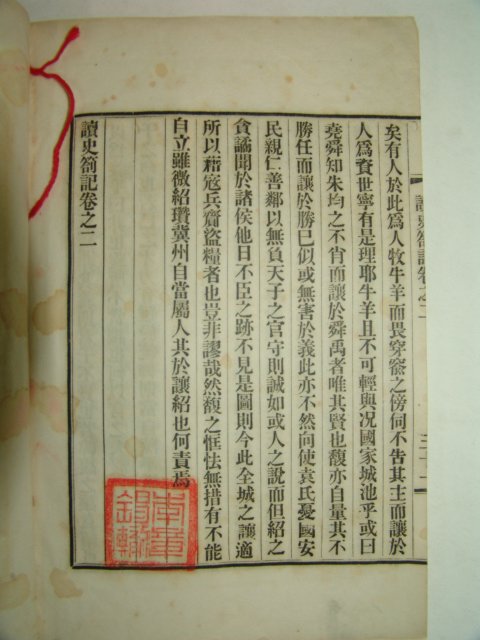 矣有人於此爲人牧牛羊而畏穿窬之傍伺不告其主而讓於
人爲資世寧有是理耶牛羊且不可輕與况國家城池乎或曰
堯舜知朱均之不肖而讓於舜禹者唯其賢也馥亦自量其不
勝任而讓於勝巳似或無害於義此亦不然向使袁氏憂國安
民親仁善鄰以無負天子之官守則誠如或人之說而但紹之
貪譎聞於諸侯他日不臣之跡不見是圖則今此全城之讓適
所以藉寇兵齎盜糧者也豈非謬哉然馥之恇怯無措有不能
自立雖微紹瓚冀州自當屬人其於讓紹也何責焉
讀史箚記卷之二